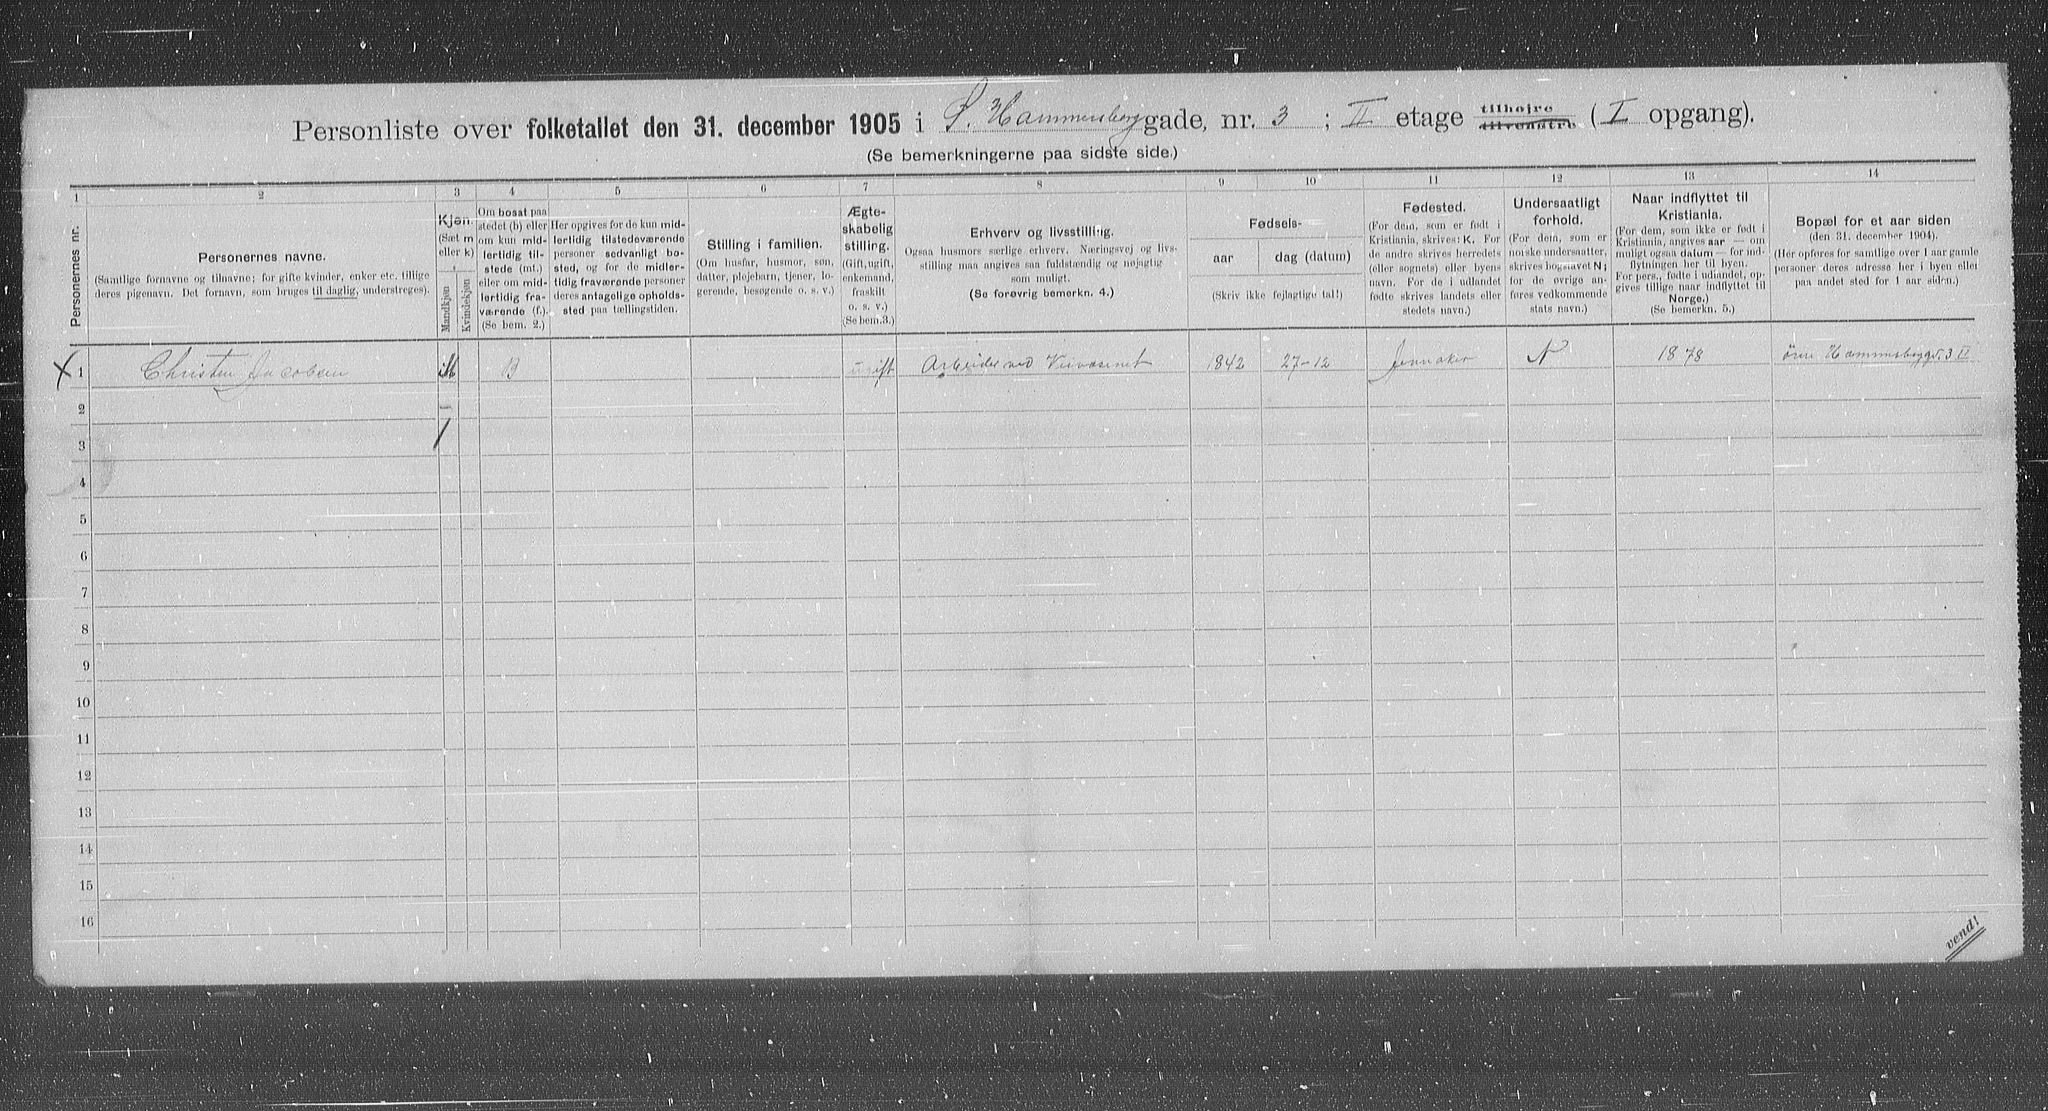 Personliste over folketallet den 31. december 1905 i Hammersborg gade, nr. 3 ; II etage tilhøjre tilvenstre ( I opgang).
(Se bemerkningerne paa sidste side.)
1 2 3 4 5 6 7 8 9 10 11 12 13 14
Personernes nr.
Personernes navne.
(Samtlige fornavne og tilnavne; for gifte kvinder, enker etc. tillige
deres pigenavn. Det fornavn, som bruges til daglig, understreges).
Kjøn.
(Sæt m
eller k)
Mandkjøn
Kvindekjøn
Om bosat paa
stedet (b) eller
om kun mid-
lertidig til-
stede (mt.)
eller om mid-
lertidig fra-
værende (f.).
(Se bem. 2.)
Her opgives for de kun mid-
lertidig tilstedeværende
personer sedvanligt bo-
sted, og for de midler-
tidig fraværende personer
deres antagelige opholds-
sted paa tællingstiden.
Stilling i familien.
(Om husfar, husmor, søn,
datter, plejebarn, tjener, lo-
gerende, besøgende o. s. v.)
Ægte-
skabelig
stilling.
(Gift, ugift,
enkemand,
fraskilt
o. s. v.)
(Se bem.3.)
Erhverv og livsstilling.
Ogsaa husmors særlige erhverv. Næringsvej og livs-
stilling maa angives saa fuldstændig og nøjagtig
som muligt.
(Se forøvrig bemerkn. 4.)
Fødsels-
aar
dag (datum)
(Skriv ikke fejlagtige tal!)
Fødested.
(For dem, som er født i
Kristiania, skrives: K. For
de andre skrives herredets
(eller sognets) eller byens
navn. For de i udlandet
fødte skrives landets eller
stedets navn.)
Undersaatligt
forhold.
(For dem, som er
norske undersaatter,
skrives bogstavet N;
for de øvrige an-
føres vedkommende
stats navn.)
Naar indflyttet til
Kristiania.
(For dem, som ikke er født i
Kristiania, angives aar — om
muligt ogsaa datum — for ind-
flytningen her til byen.
For pers., fødte i udlandet, op-
gives tillige naar indflyttet til
Norge.)
(Se bemerkn. 5.)
Bopæl for et aar siden
(den 31. december 1904).
(Her opføres for samtlige over 1 aar gamle
personer deres adresse her i byen eller
paa andet sted for 1 aar siden.)
X 1 Christen Jacobsen M B ugift Arbeider ved Veivæsenet 1842 27-12 N 1878 3 II
2
3
4
5
6
7
8
9
10
11
12
13
14
15
16
vend!